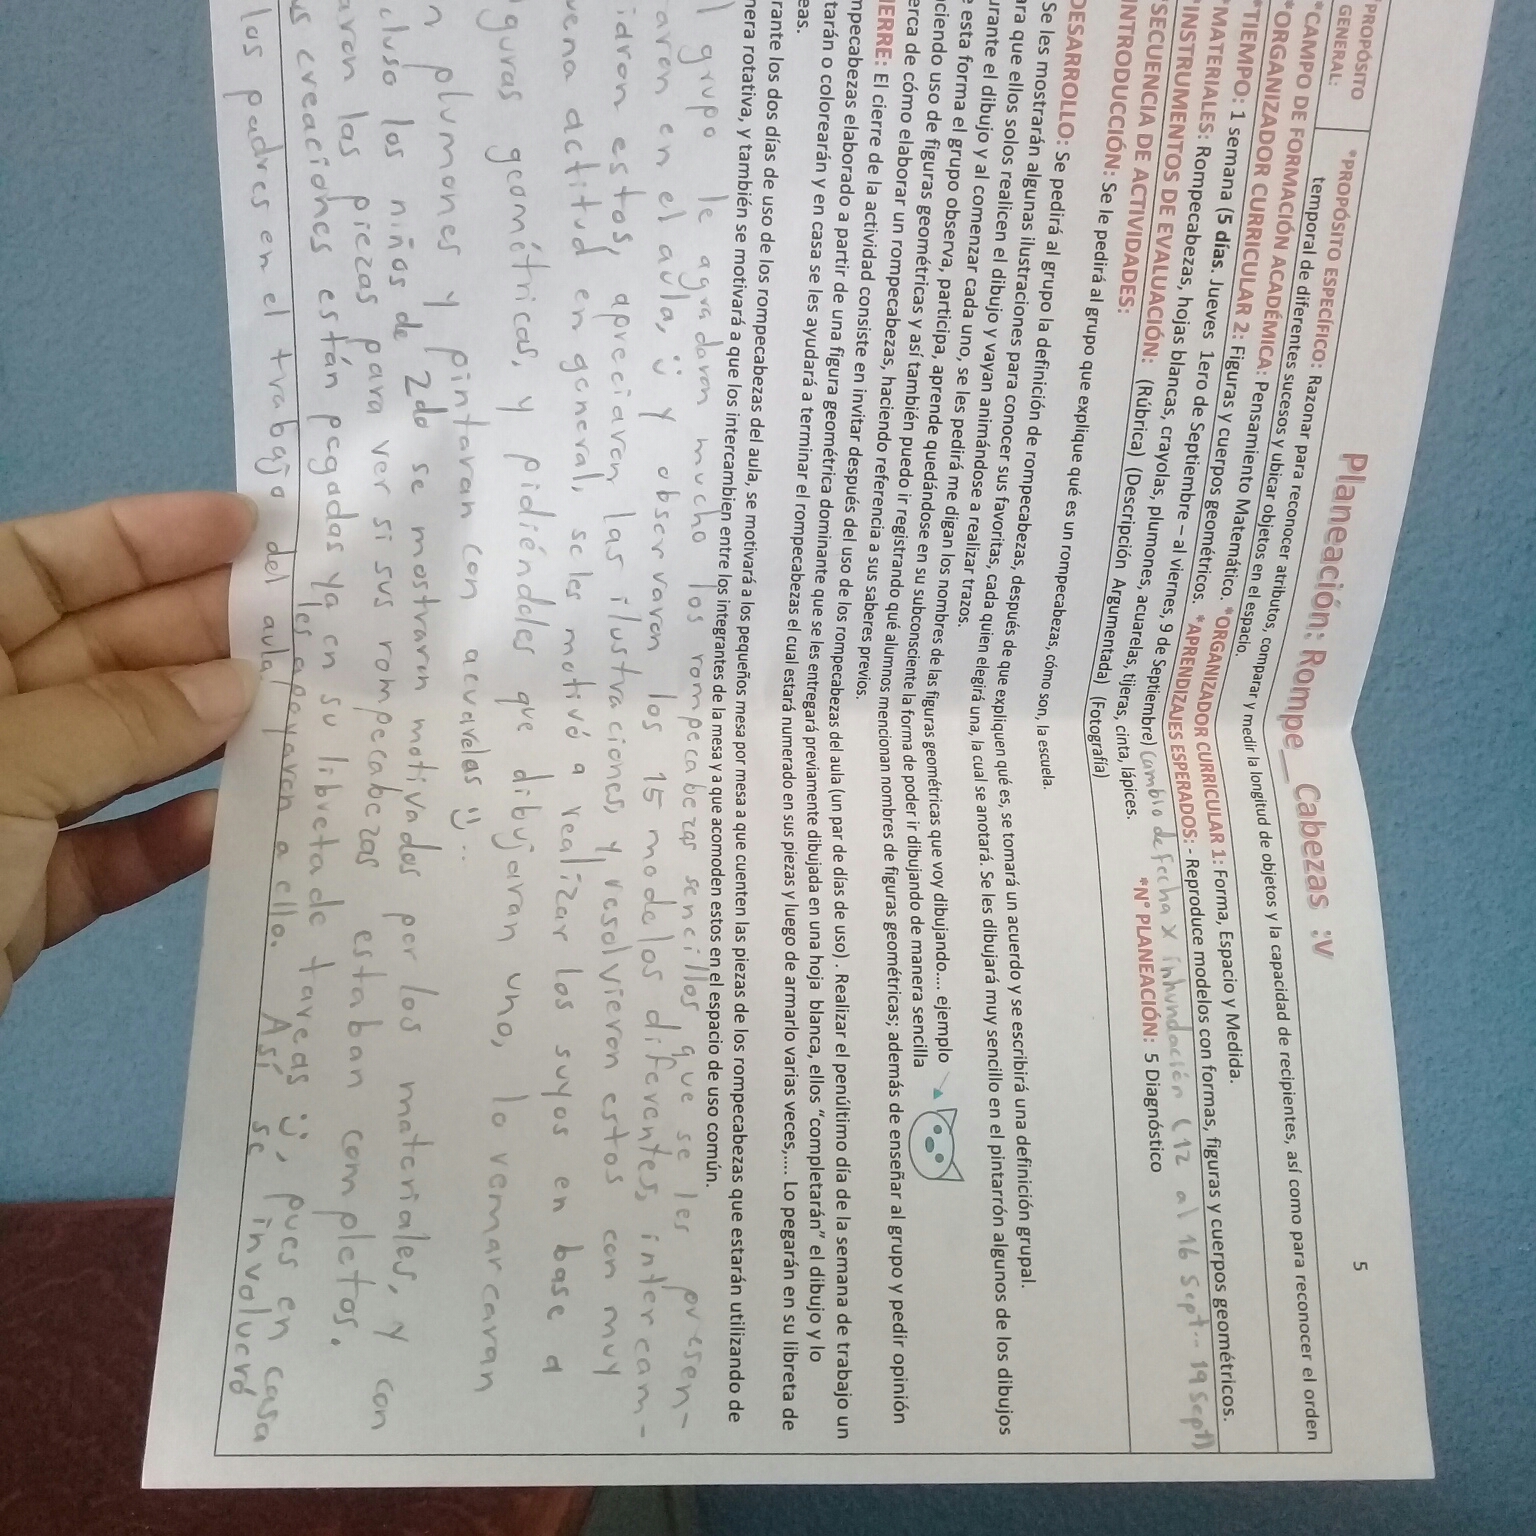 Planeación: Rompe__Cabezas :V
5
*PROPÓSITO GENERAL:
*PROPÓSITO ESPECÍFICO: Razonar para reconocer atributos, comparar y medir la longitud de objetos y la capacidad de recipientes, así como para reconocer el orden
temporal de diferentes sucesos y ubicar objetos en el espacio.
*CAMPO DE FORMACIÓN ACADÉMICA: Pensamiento Matemático. *ORGANIZADOR CURRICULAR 1: Forma, Espacio y Medida.
*ORGANIZADOR CURRICULAR 2: Figuras y cuerpos geométricos. *APRENDIZAJES ESPERADOS: - Reproduce modelos con formas, figuras y cuerpos geométricos.
*TIEMPO: 1 semana (5 días. Jueves 1ero de Septiembre – al viernes, 9 de Septiembre) (cambio de fecha x inhundación (12 al 16 sept-- 19 sept)
*MATERIALES: Rompecabezas, hojas blancas, crayolas, plumones, acuarelas, tijeras, cinta, lápices. *N° PLANEACIÓN: 5 Diagnóstico
*INSTRUMENTOS DE EVALUACIÓN: (Rúbrica) (Descripción Argumentada) (Fotografía)
*SECUENCIA DE ACTIVIDADES:
INTRODUCCIÓN: Se le pedirá al grupo que explique qué es un rompecabezas, cómo son, la escuela.
DESARROLLO: Se pedirá al grupo la definición de rompecabezas, después de que expliquen qué es, se tomará un acuerdo y se escribirá una definición grupal.
Se les mostrarán algunas ilustraciones para conocer sus favoritas, cada quien elegirá una, la cual se anotará. Se les dibujará muy sencillo en el pintarrón algunos de los dibujos
ara que ellos solos realicen el dibujo y vayan animándose a realizar trazos.
urante el dibujo y al comenzar cada uno, se les pedirá me digan los nombres de las figuras geométricas que voy dibujando.... ejemplo
e esta forma el grupo observa, participa, aprende quedándose en su subconsciente la forma de poder ir dibujando de manera sencilla
ciendo uso de figuras geométricas y así también puedo ir registrando qué alumnos mencionan nombres de figuras geométricas; además de enseñar al grupo y pedir opinión
erca de cómo elaborar un rompecabezas, haciendo referencia a sus saberes previos.
IERRE: El cierre de la actividad consiste en invitar después del uso de los rompecabezas del aula (un par de días de uso) . Realizar el penúltimo día de la semana de trabajo un
mpecabezas elaborado a partir de una figura geométrica dominante que se les entregará previamente dibujada en una hoja blanca, ellos “completarán” el dibujo y lo
tarán o colorearán y en casa se les ayudará a terminar el rompecabezas el cual estará numerado en sus piezas y luego de armarlo varias veces,.... Lo pegarán en su libreta de
eas.
rante los dos días de uso de los rompecabezas del aula, se motivará a los pequeños mesa por mesa a que cuenten las piezas de los rompecabezas que estarán utilizando de
nera rotativa, y también se motivará a que los intercambien entre los integrantes de la mesa y a que acomoden estos en el espacio de uso común.
l grupo le agradaron mucho los rompecabezas sencillos que se les presen-
aron en el aula, :) y observaron los 15 modelos diferentes, intercam-
idron estos, apreciaron las ilustraciones, y resolvieron estos con muy
uena actitud en general, se les motivó a realizar los suyos en base a
guras geométricas, y pidiéndoles que dibujaran uno, lo remarcaran
n plumones y pintaran con acuarelas :)...
cluso los niños de 2do se mostraron motivados por los materiales, y con
aron las piezas para ver si sus rompecabezas estaban completos.
us creaciones están pegadas ya en su libreta de tareas :), pues en casa
les apoyaron a ello. Así se involucró
los padres en el trabajo del aula.